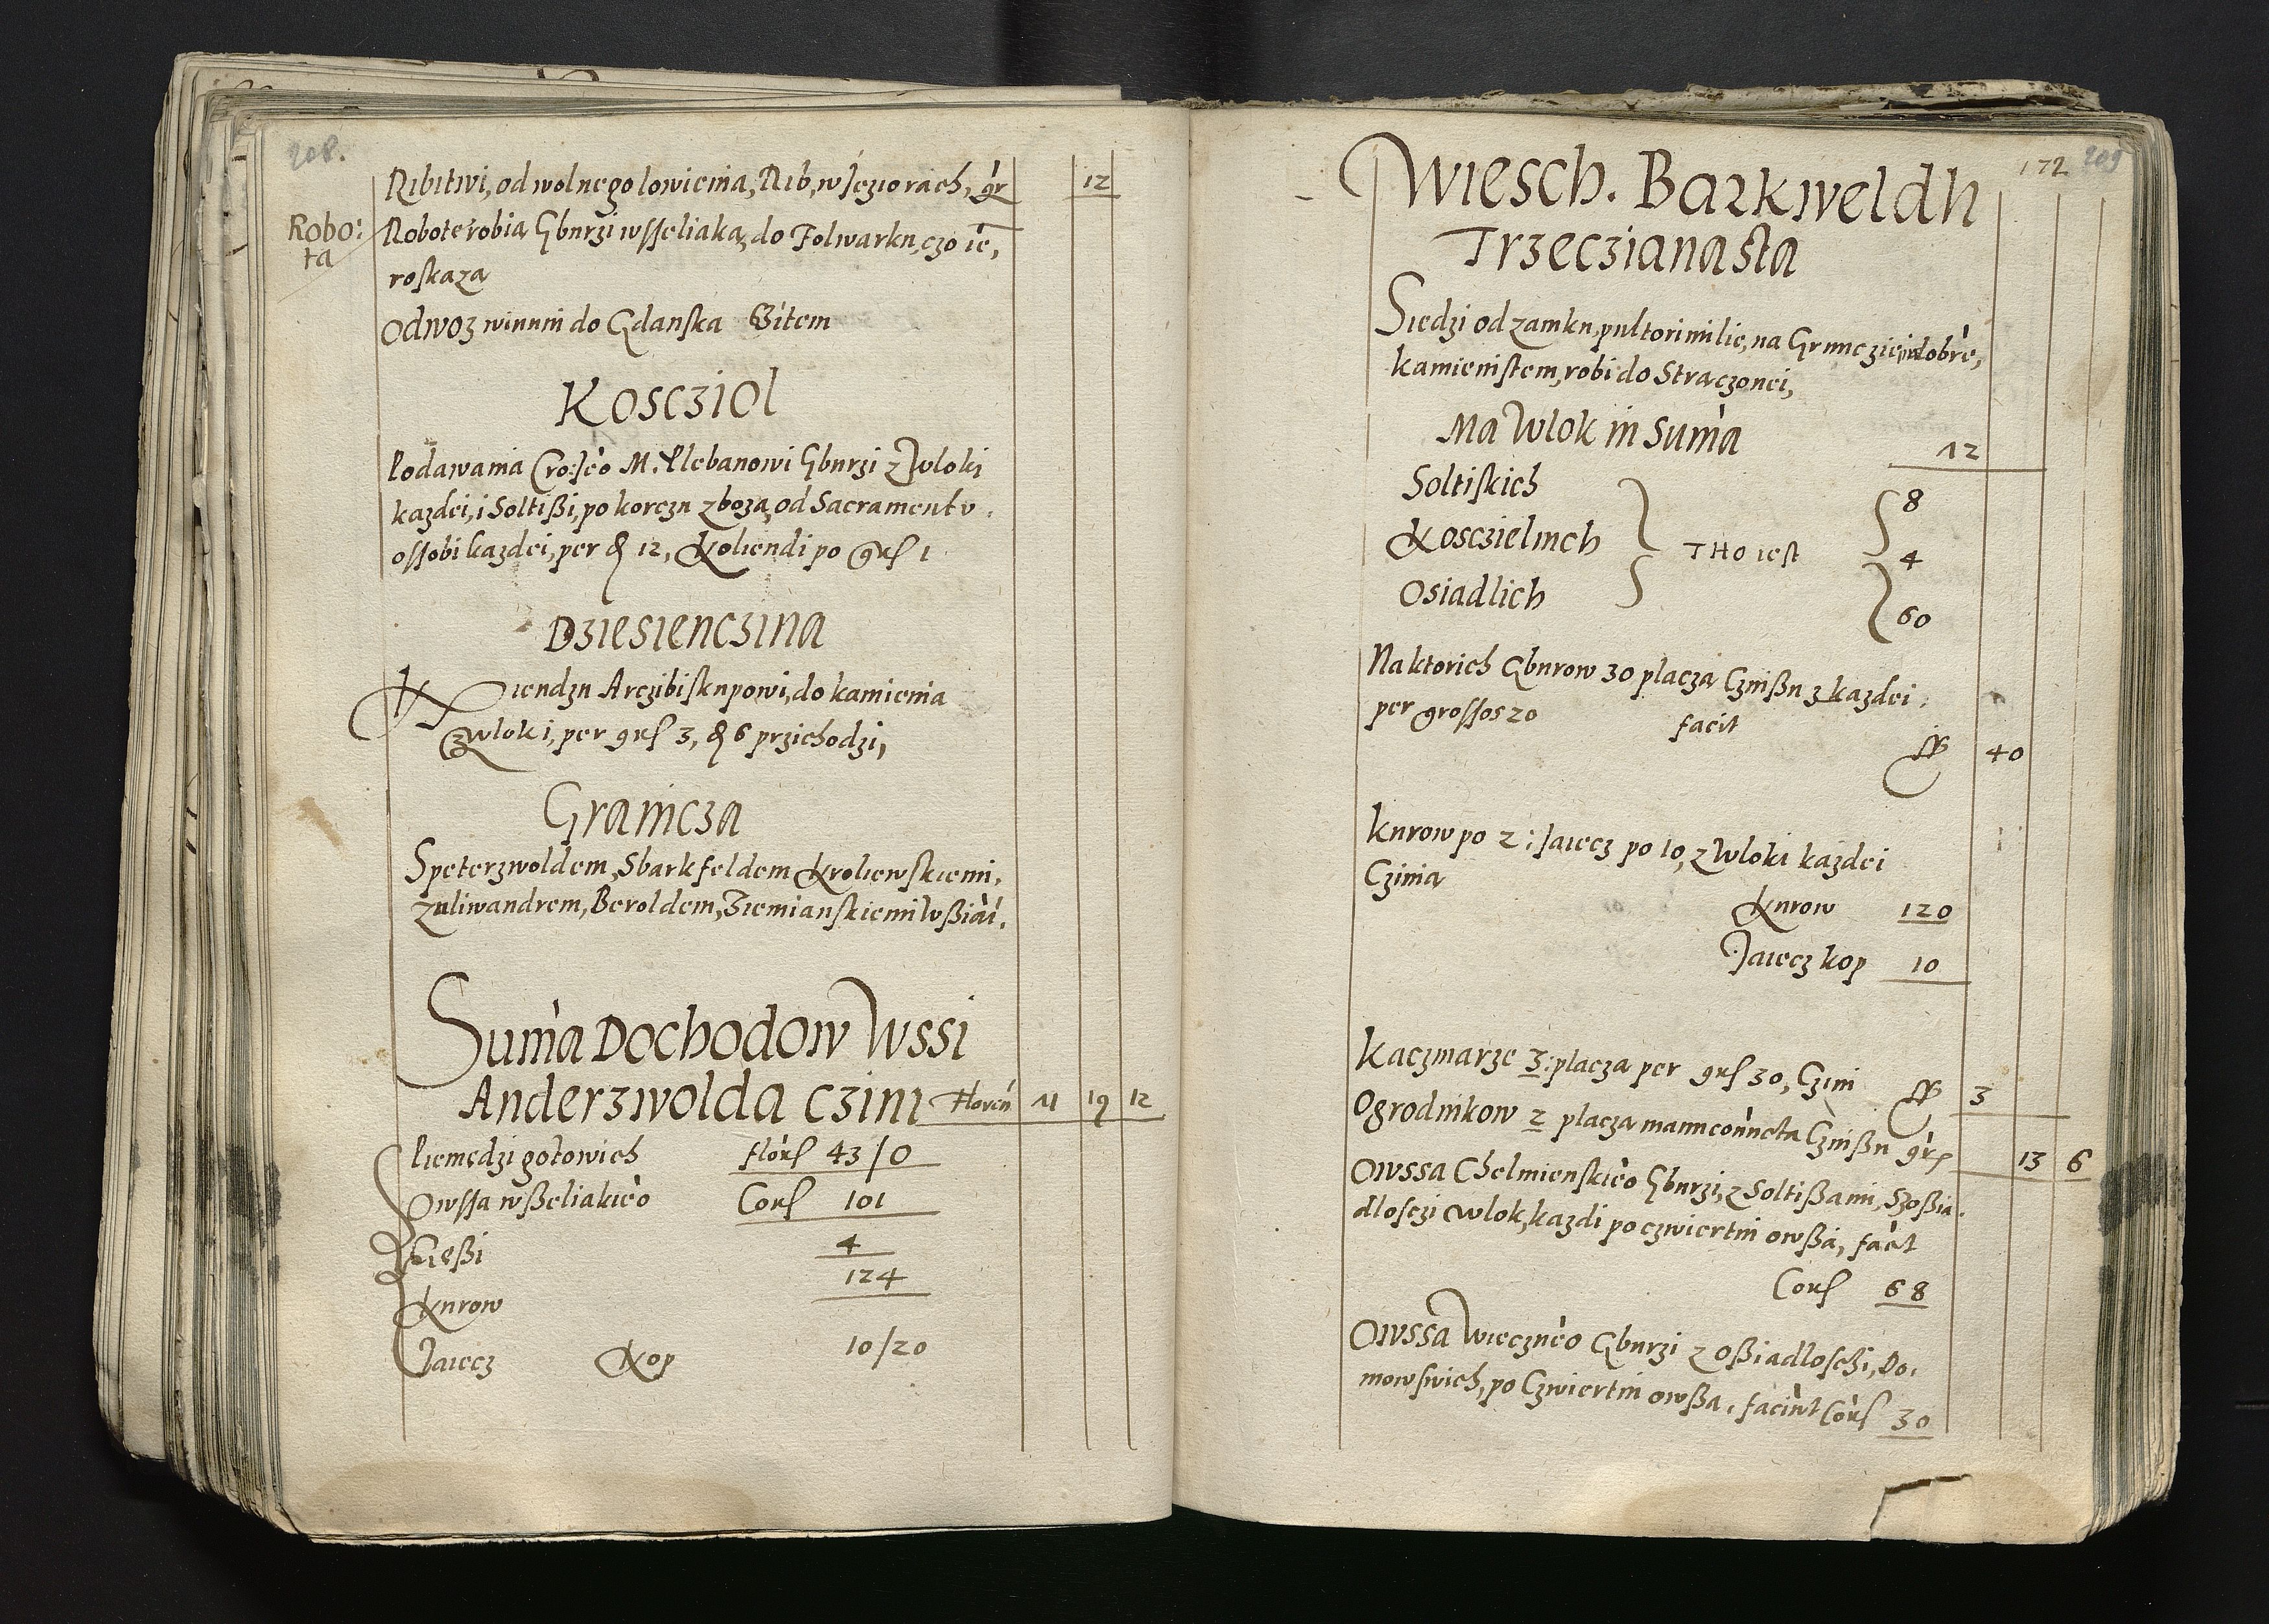 208.
Ribitwi, od wolnego lowienia, Rib, w Jeziorach, gr 12
Robo:
ta
Robote robia Gburzi wsseliaka, do Folwarku, czo ie,
roskaza
Odwoz winni do Gdanska Zitem
Kosczιol
Podawania Cro: Jeo M. Plebanowi Gburzi z Wloki
kazdei, i Soltißi, po korczu zboza, od Sacramentu.
ossobi kazdei, per ₰ 12, Koliendi po grß 1
Dziesienczina
Xiendzu Arczibiskupowi, do kamienia
z wloki, per grß 3, ₰ 6 przichodzi,
Granicza
S peterzwoldem, S barkfeldem Kroliewskiemi,
z uliwandrem, Beroldem, Ziemianskiemi Wßiai.
Suma Dochodow Wssi
Anderzwolda czini Floren 41 19 12
Pieniędzi gotowich florß 43/0
Owssa wßeliakieo Corß 101
Gęßi 4
Kurow 124
Jaiecz Kop 10/20
172 209
Wiesch. Barkweldh
Trzeczianasta
Siedzi od zamku, pultori milie, na Grunczie dobre,
kamienistem, robi do Straczonei,
Ma Wlok in Suma 12
Soltiskich 8
Kosczielnich THo iest 4
Osiadlich 60
Na ktorich Gburow 30 placza Czinßu z kazdei
per grossos 20 facit
fl 40
Kurow po 2: Jaiecz po 10, z Wloki kazdei
Czinia
Kurow 120
Jaiecz kop 10
Kaczmarze 3: placza per grß 30, Czini fl 3
Ogrodnikow 2 placza manu coniuncta Czinßu grß 13 6
Owssa Chelmienskieo Gburzi, z Soltißami, S zoßia.
dlosczi wlok, kazdi po czwiertni owßa, facit
Corß 68
Owssa Wieczneo Gburzi z oßiadlosczi, Do.
mowswich, po Czwiertni owßa, faciunt Corß 30